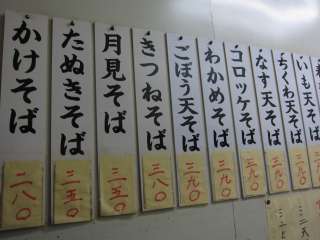 かけそば
二八〇
たぬきそば
三五〇
月見そば
三五〇
きつねそば
三八〇
ごぼう天そば
三九〇
わかめそば
三九〇
コロッケそば
三九〇
なす天そば
三九〇
ちくわ天そば
三九〇
いも天そば